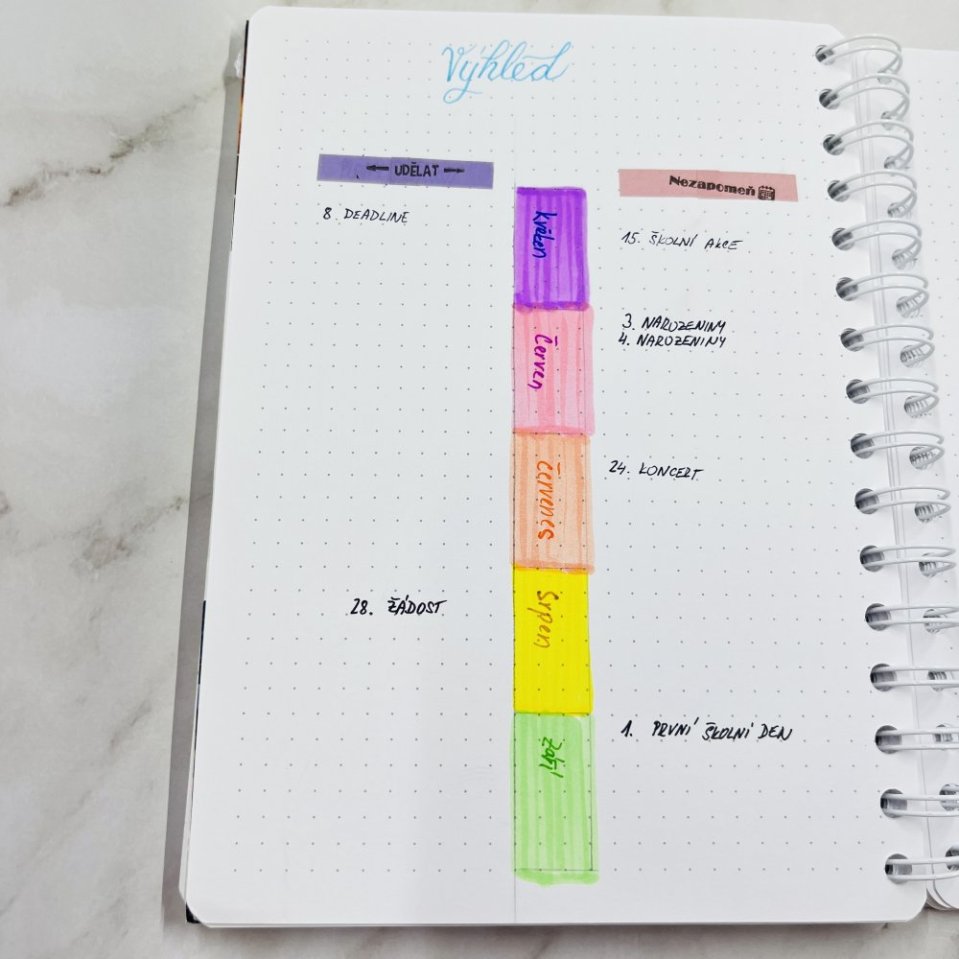 Výhled
UDĚLAT
Nezapomeň
8. DEADLINE
Květen
15. ŠKOLNÍ AKCE
Červen
3. NAROZENINY
4. NAROZENINY
Červenec
24. KONCERT
Srpen
28. ŽÁDOST
Září
1. PRVNÍ ŠKOLNÍ DEN